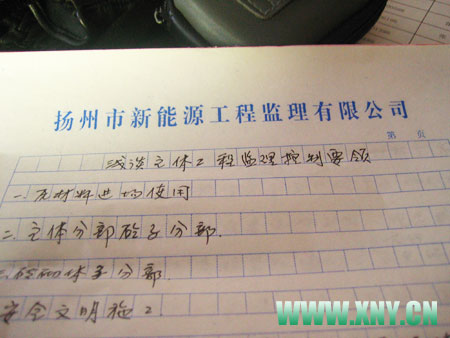 扬州市新能源工程监理有限公司
第 页
浅谈主体工程监理控制要领
一.原材料进场使用
二.主体分部砼子分部.
三.砼砌体子分部.
安全文明施工
WWW.XNY.CN